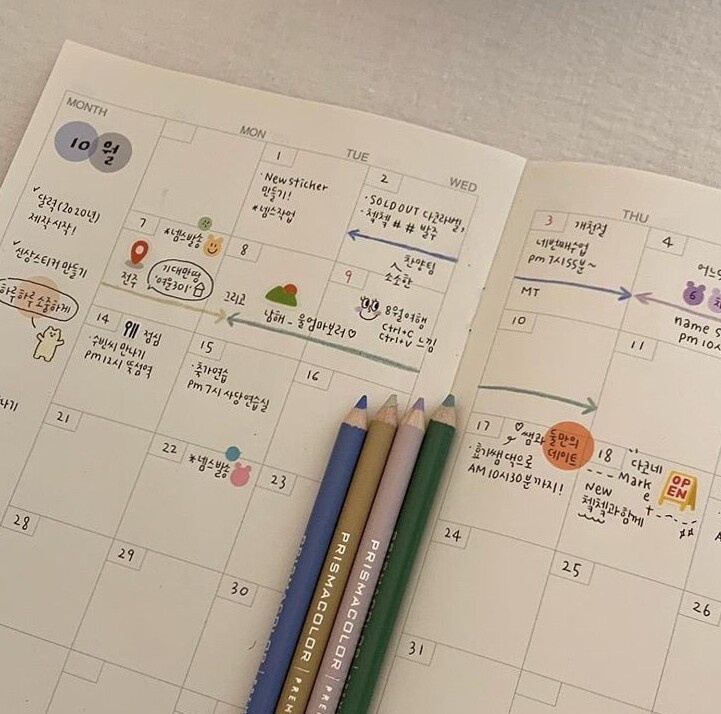 MONTH
MON
TUE
WED
THU
10월
✓달력(2020년)
제작시작!
✓신상스티커 만들기
하루하루 소중하게
1
·New sticker
만들기!
*넴스작업
2
·SOLD OUT 다크라벨,
·첵첵 # # 발주
찬양팀
3
개천절
네번째수업
pm 7시55분~
MT
4
어느
6
name s
pm 10시
7
*넴스발송
전주
기대만땅
'여울301'
8
그리고
남해_울엄마보러♡
9
소소한
8월여행
ctrl+c
ctrl+v 느낌
10
11
14
점심
·수빈씨 만나기
pm12시 뚝섬역
15
·축가연습
pm 7시 사당연습실
16
17
♡쌤과 둘만의
데이트
·효기쌤댁으로
AM 10시30분까지!
18
다코네
Market
OPEN
New
첵첵과함께
21
22
*넴스발송
23
24
25
26
28
29
30
31
PRISMACOLOR | PREM
PRISMACOLOR | PREM